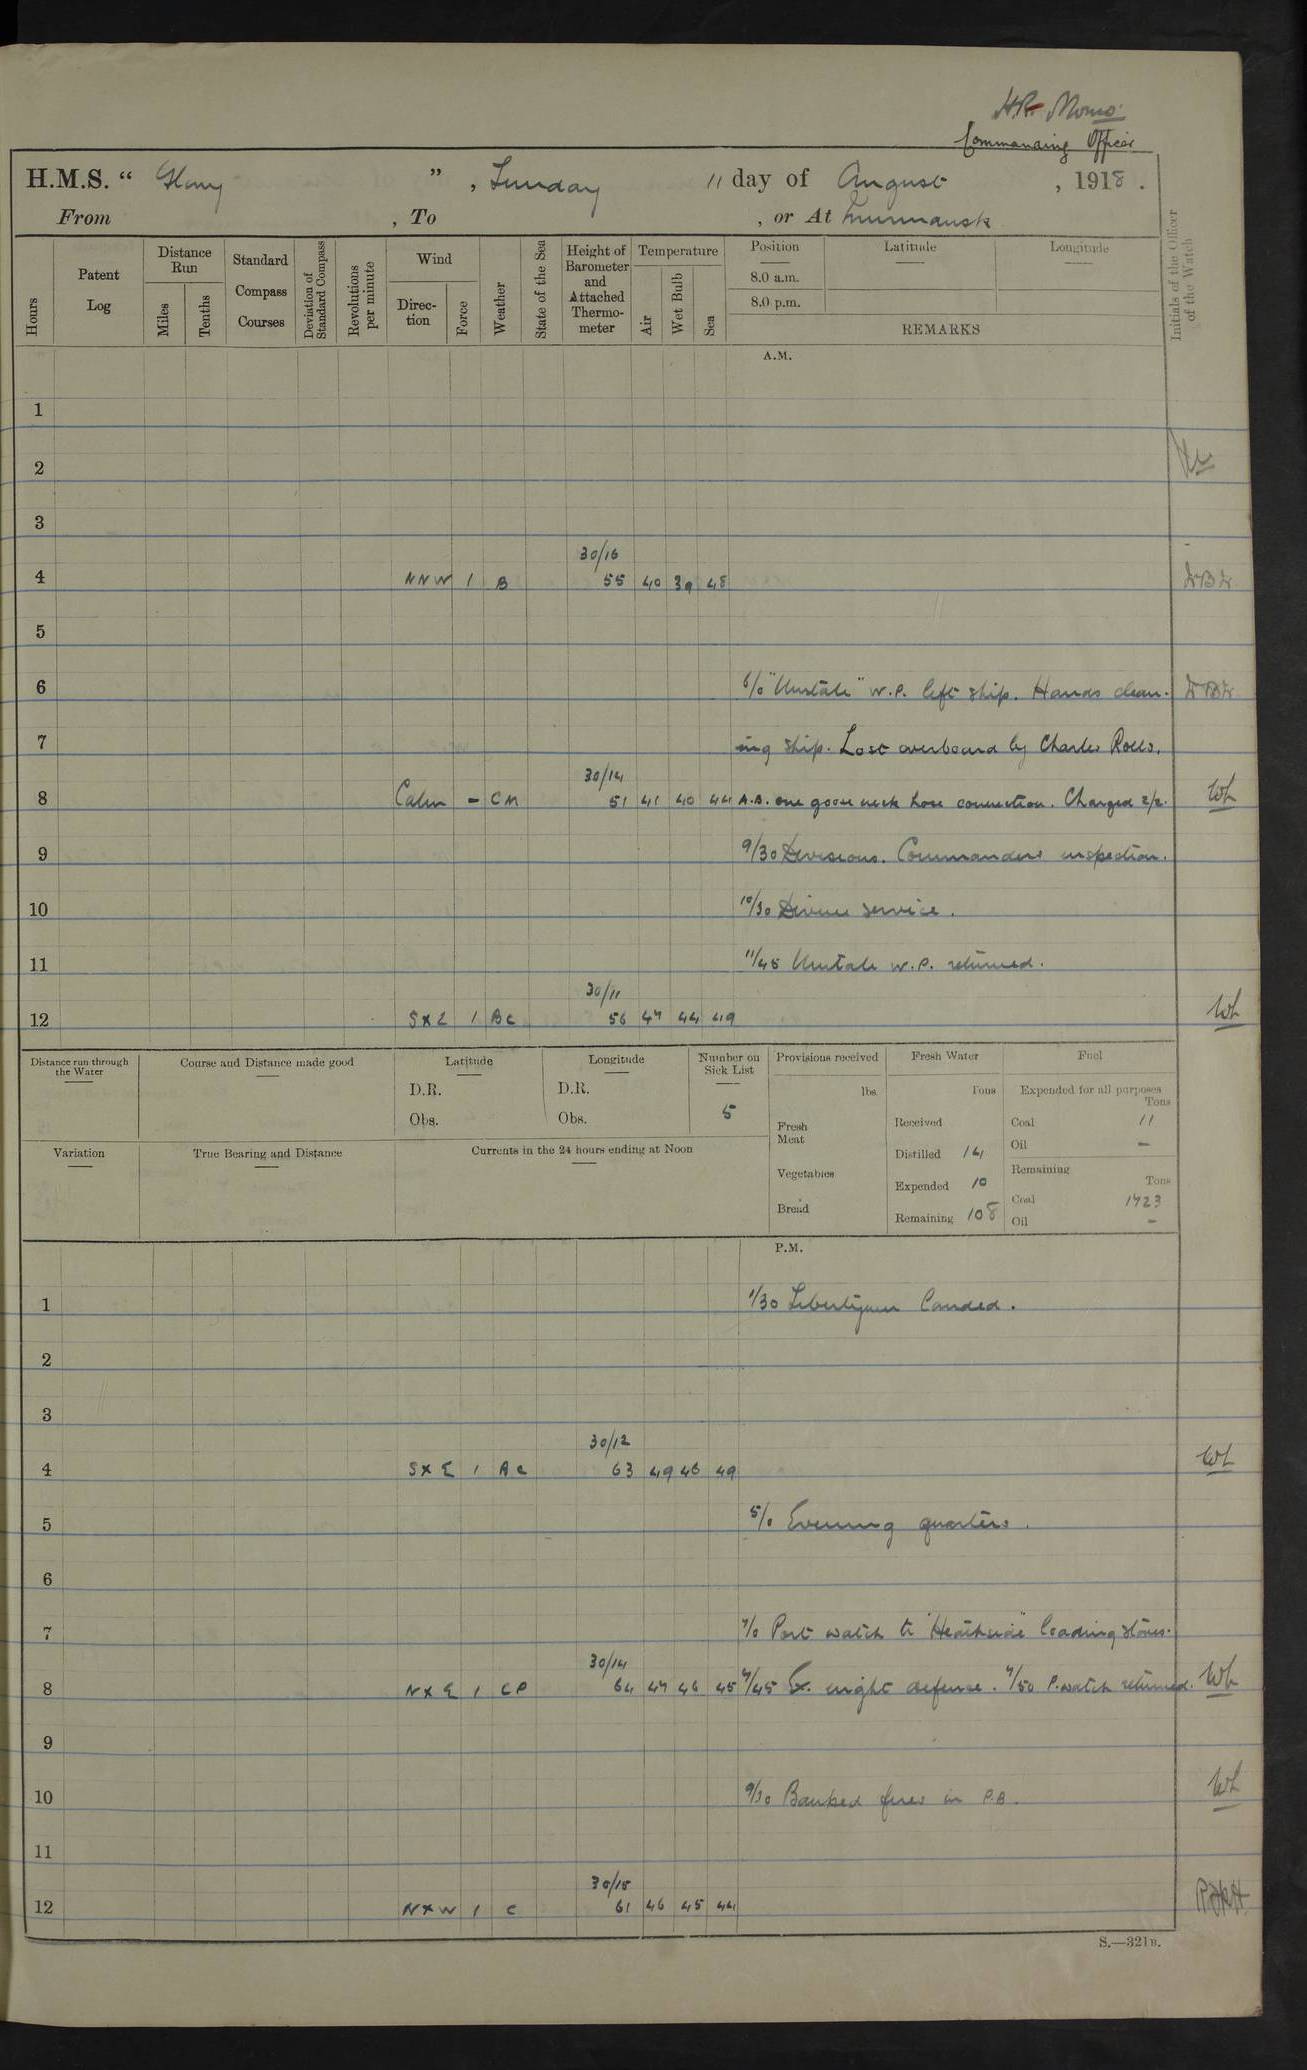 Commanding Officer
H.M.S. " Glory " , Sunday 11 day of August , 1918 .
From , To , or At Murmansk
Hours
Patent Log
Distance Run
Miles
Tenths
Standard Compass Courses
Deviation of Standard Compass
Revolutions per minute
Wind
Direc- tion
Force
Weather
State of the Sea
Height of Barometer and Attached Thermo- meter
Temperature
Air
Wet Bulb
Sea
Position
8.0 a.m.
8.0 p.m.
Latitude
Longitude
REMARKS
Initials of the Officer of the Watch
A.M.
1
2
3
30/16
4 NNW 1 B 55 40 39 48
5
6 6/0 W.P. left ship. Hands clean-
7 ing ship. Lost overboard by Charles Rolls,
30/14
8 Calm - CM 51 41 40 44 A.B. one goose neck hose connection. Charged 2/2.
9 9/30 Divisions. Commanders inspection.
10 10/30 Divine service.
11 11/45 W.P. returned.
30/11
12 S x E 1 BC 56 47 44 49
Distance run through the Water
Course and Distance made good
Latitude
D.R.
Obs.
Longitude
D.R.
Obs.
Number on Sick List
5
Provisions received
lbs.
Fresh Meat
Vegetables
Bread
Fresh Water
Tons
Received
Distilled 14
Expended 10
Remaining 108
Fuel
Expended for all purposes
Tons
Coal 11
Oil -
Remaining
Tons
Coal 1723
Oil -
Variation
True Bearing and Distance
Currents in the 24 hours ending at Noon
P.M.
1 1/30 Libertymen landed.
2
3
30/12
4 S x E 1 BC 63 49 46 49
5 5/0 Evening quarters.
6
7 7/0 Port watch to loading stores.
30/14
8 N x E 1 CP 64 47 46 45 7/45 Ex. night defence. 7/50 P. watch returned.
9
10 9/30 Banked fires in P.B.
11
30/15
12 N x W 1 C 61 46 45 44
S.—321B.